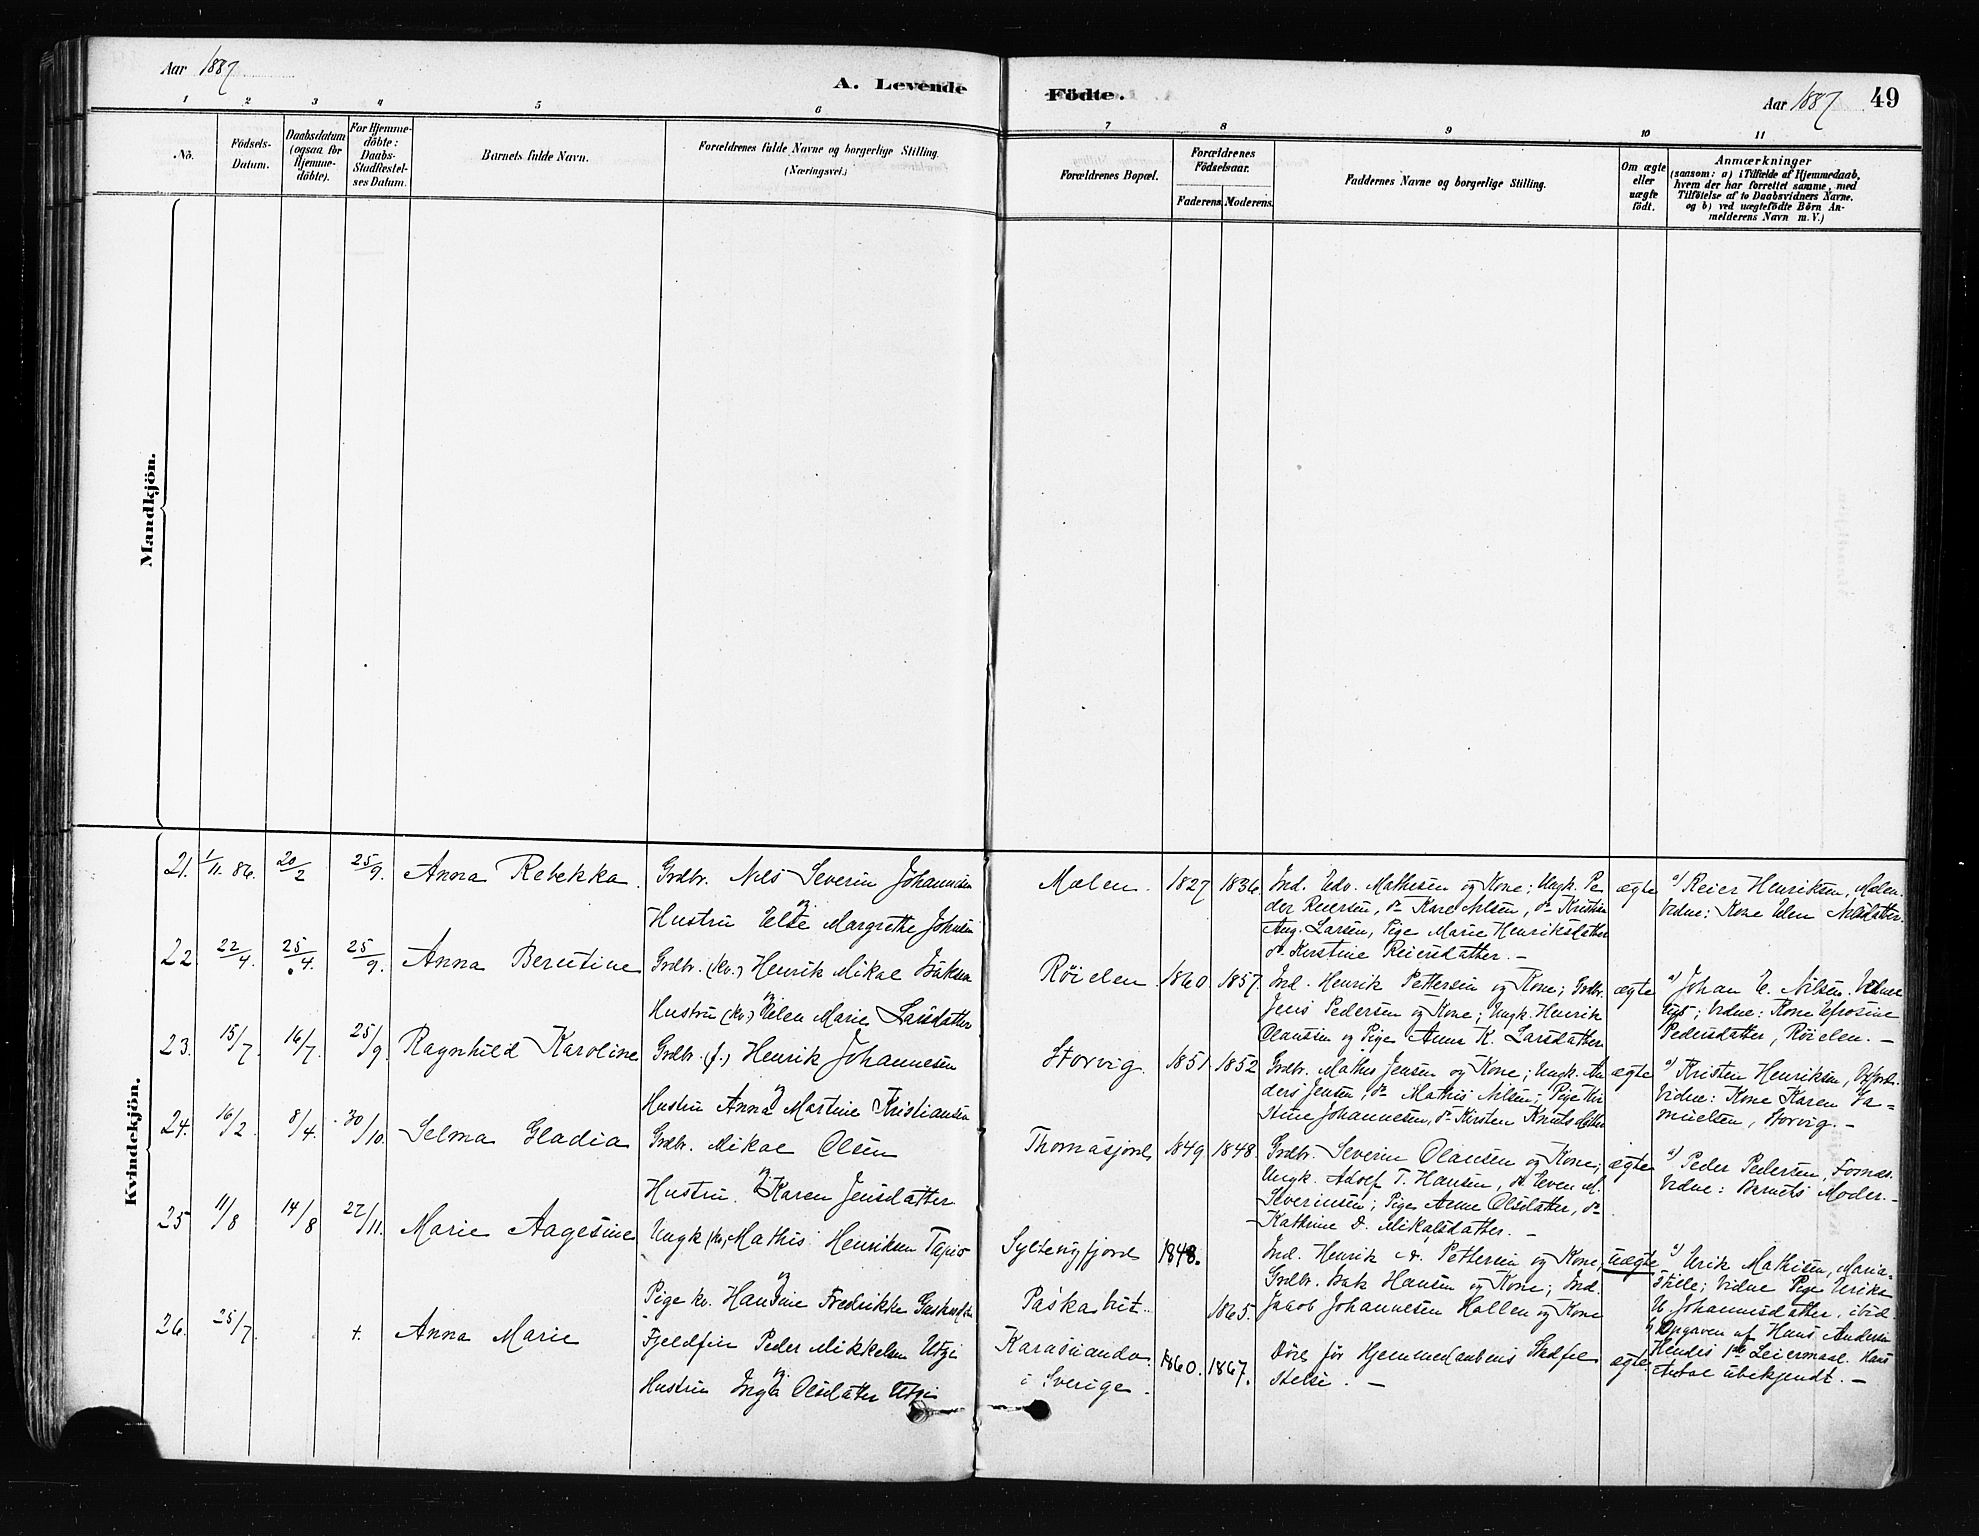 Aar 1887
A. Levende Födte.
Aar 1887 49
1 2 3 4 5 6 7 8 9 10 11
No.
Födsels-
Datum.
Daabsdatum
(ogsaa for
Hjemme-
döbte).
For Hjemme-
döbte:
Daabs-
Stadfæstel-
ses Datum.
Barnets fulde Navn.
Forældrenes fulde Navne og borgerlige Stilling.
(Næringsvei.)
Forældrenes Bopæl.
Forældrenes
Födselsaar.
Faderens. Moderens.
Faddernes Navne og borgerlige Stilling.
Om ægte
eller
uægte
födt.
Anmærkninger
(saasom: a) i Tilfælde af Hjemmedaab,
hvem der har forrettet samme, med
Tilföielse af to Daabsvidners Navne.
og b) ved uægtefödte Börn An-
melderens Navn m. V.)
Mandkjön.
Kvindekjön.
21. 1/11. 86. 20/2 25/9. Anna Rebekka.
Grdbr. Nils Severin Johannesen
og
Hustru Else Margrethe Johnsen
Malen. 1827 1836
Ind. Edv. Mathisen og Kone; Ungk. Pe-
der Reiersen, do Kare Nilsen, do Kristian
Aug. Larsen, Pige Marie Henriksdatter
do. Kirstine Reiersdatter. –
ægte
a) Reier Henriksen, Malen.
Vidne: Kone Elen Nilsdatter.
22 22/4. 25/4. 25/9. Anna Berntine
Grdbr. (kv.) Henrik Mikal Isaksen
og
Hustru (kv.) Elen Marie Larsdatter
Röielen 1860. 1857.
Ind. Henrik Pettersen og Kone; Grdbr.
Jens Pedersen og Kone; Ungk. Henrik
Olaussen og Pige Anne K. Larsdatter
ægte
a) Johan E. Nilsen.
Vidne: Kone Efrosine
Pedersdatter, Röielen. –
23. 15/7. 16/7. 25/9. Ragnhild Karoline
Grdbr. (f.) Henrik Johannesen
og
Hustru Anna Martine Kristiansen
Storvig. 1851. 1852
Grdbr. Mathis Jensen og Kone; Ungk. An-
ders Jensen, do Mathis Nilsen; Pige Kir-
stine Johannesen, do Kirsten Knutsdatter
ægte
a) Kristen Henriksen,
Vidne: Kone Karen Sa-
muelsen, Storvig. –
24. 16/2. 8/4. 30/10. Selma Gladia
Grdbr. Mikal Olsen
og
Hustru. Karen Jensdatter
Thomasjord 1849 1848.
Grdbr. Severin Olausen og Kone;
Ungk. Adolf T. Hansen, do Even M.
Severinsen; Pige Anne Olsdatter, do
Kathrine D. Mikalsdatter. –
ægte
a) Peder Pedersen, Fornes.
Vidne: Barnets Moder. –
25 11/8 14/8 27/11. Marie Aagesine
Ungk. (kv.) Mathis Henriksen Tapio
og
Pige kv. Hansine Fredrikke
Syltevigfjord 1848.
Paskabut. 1865.
Ind. Henrik A. Pettersen og Kone,
Grdbr. Isak Hansen og Kone; Ind.
Jacob Johannesen Hallen og Kone
uægte
a) Erik Mathisen, Maria-
stille; Vidne Pige Erika
U. Johannesdatter, ibid.
b) Opgaven af Hans Andersen
Hendes 1ste Leiermaal. Hans
Antal ubekjendt. –
26. 25/7. +. Anna Marie
Fjeldfin Peder Mikkelsen Utzi
og
Hustru Inga Olsdatter Utzi
Karasuando
i Sverige. 1860. 1867.
Död för Hjemmedaabens Stadfæ-
stelse. –
ægte